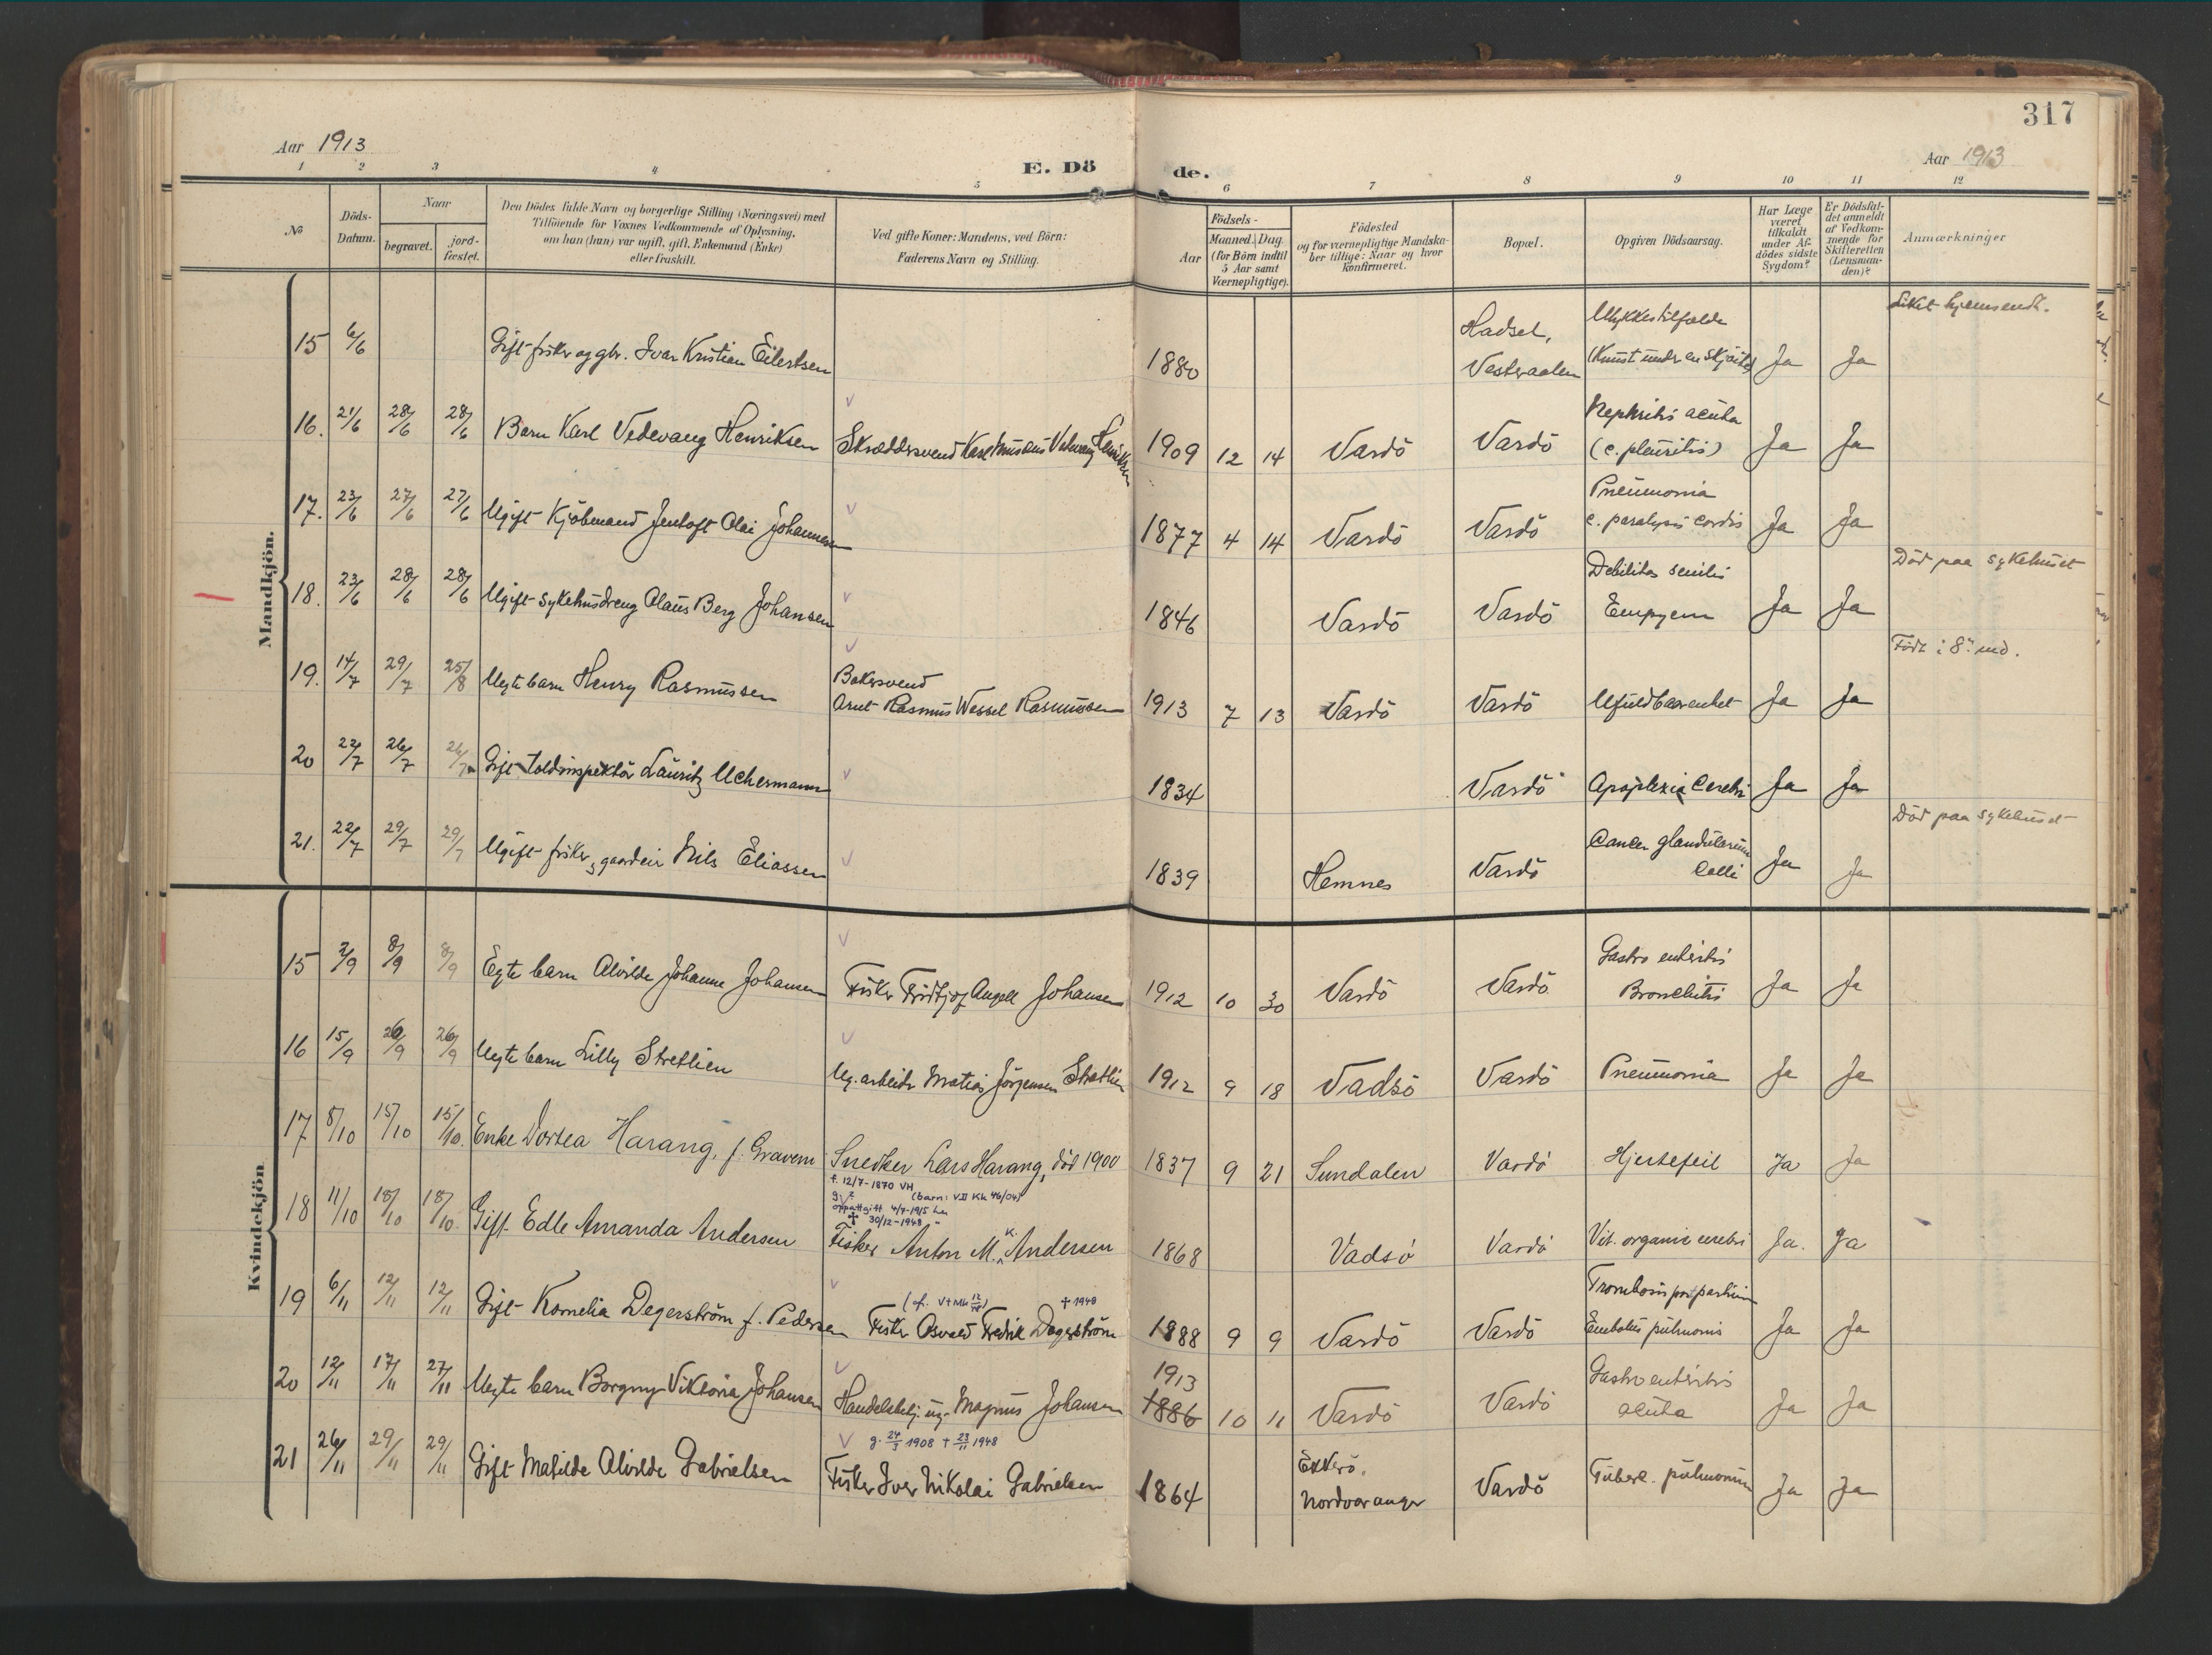 317
Aar 1913
Aar 1913
E. Dö de.
1 2 3 4 5 6 7 8 9 10 11 12
No
Döds-Datum.
Naar
begravet.
jord-fæstet.
Den Dödes fulde Navn og borgerlige Stilling (Næringsvei) med
Tilföiende for Voxnes Vedkommende af Oplysning,
om han (hun) var ugift, gift, Enkemand (Enke)
eller fraskilt.
Ved gifte Koner: Mandens, ved Börn:
Faderens Navn og Stilling.
Födsels-
Aar
Maaned. Dag.
(for Börn indtil
5 Aar samt
Værnepligtige).
Födested
og for værnepligtige Mandska-
ber tillige: Naar og hvor
konfirmeret.
Bopæl.
Opgiven Dödsaarsag.
Har Læge
været
tilkaldt
under Af-
dödes sidste
Sygdom?
Er Dödsfal-
det anmeldt
af Vedkom-
mende for
Skifteretten
(Lensman-
den)?
Anmærkninger
Mandkjön.
15 6/6 Gift fisker og gbr. Ivar Kristian Eilertsen 1880 Hadsel, Vesteraalen Ulykkestilfælde (Knust under en skjöite) Ja Ja Liket hjemsendt.
16. 21/6 28/6 28/6 Barn Karl Vedevang Henriksen Skræddersvend Karl Vedevang Henriksen 1909 12 14 Vardö Vardö Nephritis acuta (c. pleuritis) Ja Ja
17. 23/6 27/6 27/6 Ugift Kjöbmand Jentoft Olai Johannesen 1877 4 14 Vardö Vardö Pneumonia c. paralysis cordis Ja Ja
18. 23/6 28/6 28/6 Ugift sykehusdreng Olaus Berg Johansen 1846 Vardö Vardö Debilitas senilis Empyem Ja Ja Död paa sykehuset
19. 14/7 29/7 25/8 Uegte barn Henry Rasmussen Bakersvend Arnt Rasmus Wessel Rasmussen 1913 7 13 Vardö Vardö Ufuldbaarenhet Ja Ja Födt i 8. md.
20 22/7 26/7 26/7 Gift Toldinspektör Lauritz Uchermann 1834 Vardö Apoplexia Cerebri Ja Ja
21. 22/7 29/7 29/7 Ugift fisker, gaardeier Nils Eliassen 1839 Hemnes Vardö Cancer glandularum Colli Ja Ja Död paa sykehuset
Kvindekjön
15 3/9 8/9 8/9 Egte barn Alvilde Johanne Johansen Fisker Fridtjof Angell Johansen 1912 10 30 Vardö Vardö Gastro enteritis Bronchitis Ja Ja
16 15/9 20/9 26/9 Uegte barn Lilly Stretlien Ug. arbeider Matias Jörgensen Stretlien 1912 9 18 Vadsö Vardö Pneumonia Ja Ja
17 8/10 15/10 15/10. Enke Dortea Harang, f. Gravem Snedker Lars Harang, död 1900 1837 9 21 Sundalen Vardö Hjertefeil Ja Ja
f. 12/7-1870 VH
(barn: VII Kk 46/04)
oppattgift 4/7-1915
✝ 30/12-1948
18 11/10 18/10 18/10. Gift Edle Amanda Andersen Fisker Anton M. K. Andersen 1868 Vadsö Vardö Vit. organic cerebri Ja. Ja
19 6/11 12/11 12/11 Gift Kornelia Degerström f. Pedersen Fisker Osvald Fredrik Degerström ✝ 1948 1888 9 9 Vardö Vardö Embolus pulmonis Ja Ja
20 12/11 17/11 27/11 Uegte barn Borgny Viktoria Johansen Handelsbetj. ug. Magnus Johansen 1913 1886 10 11 Vardö Vardö Gastroenteritis acuta Ja Ja
g. 24/5 1908 ✝ 23/11 1948
21 26/11 29/11 29/11 Gift Matilde Alvilde Gabrielsen Fisker Iver Nikolai Gabrielsen 1864 Ekkerö, Nordvaranger Vardö Tuberc. pulmonum Ja Ja